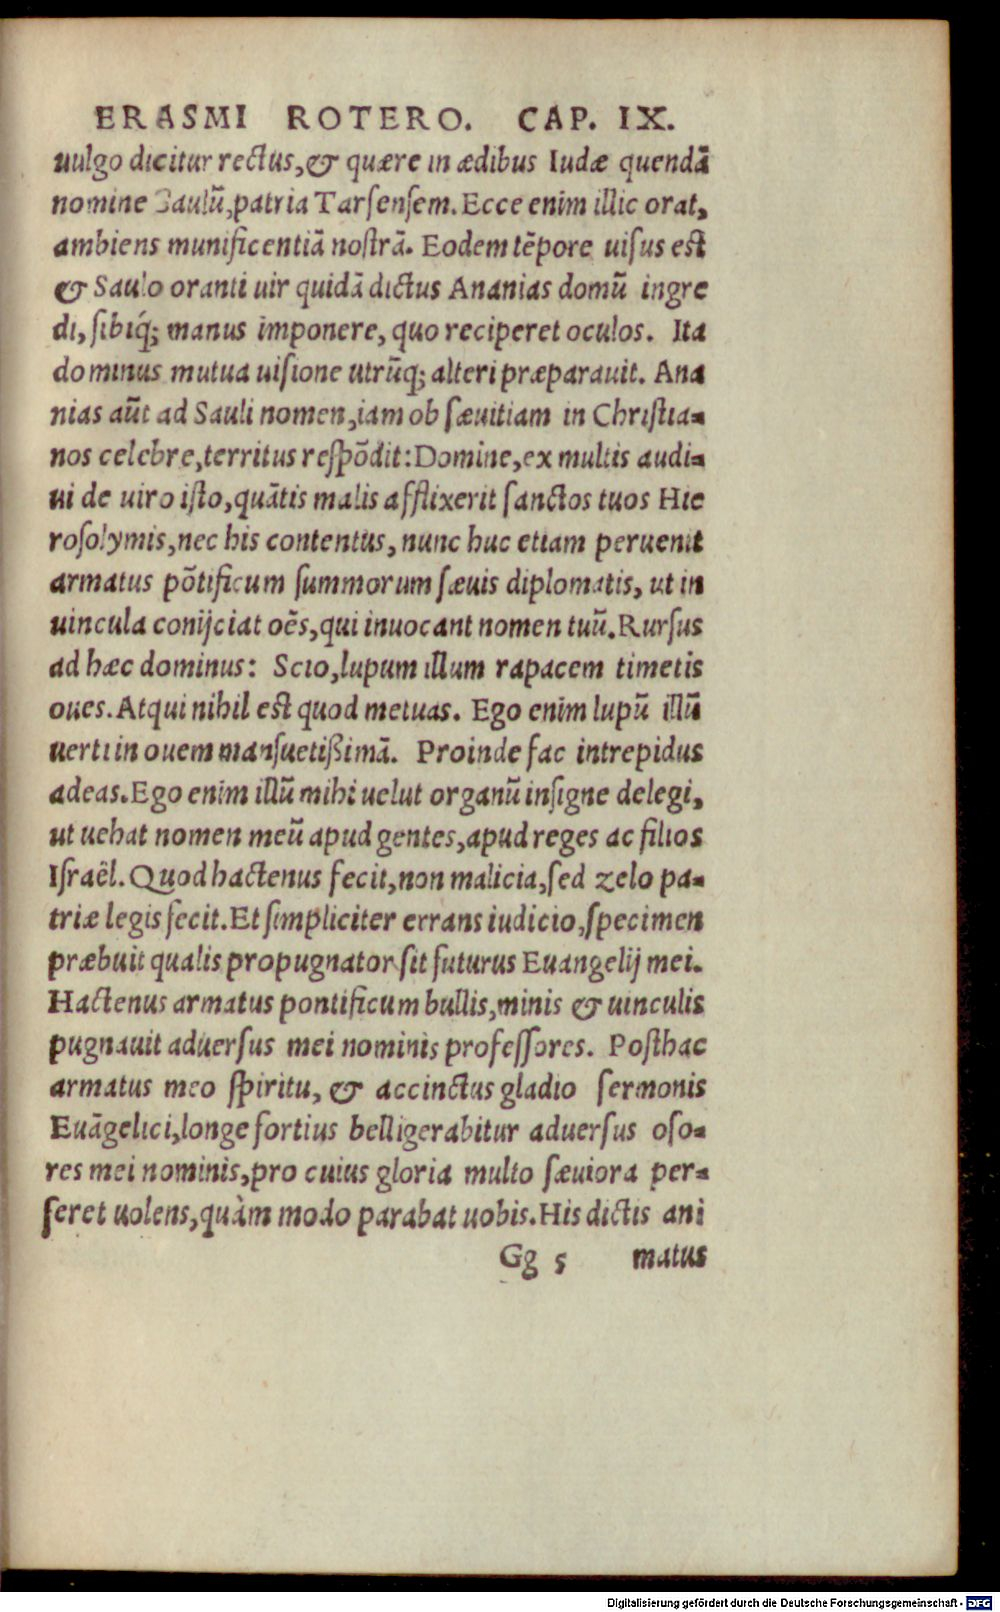 ERASMI ROTERO. CAP. IX.
uulgo dicitur rectus,& quære in ædibus Iudæ quendā
nomine Saulū,patria Tarſenſem.Ecce enim illic orat,
ambiens munificentiā noſtrā. Eodem tēpore uiſus eſt
& Saulo oranti uir quidā dictus Ananias domū ingre
di, ſibiq́; manus imponere, quo reciperet oculos. Ita
dominus mutua uiſione utrūq; alteri præparauit. Ana
nias aūt ad Sauli nomen,iam ob ſæuitiam in Chriſtia-
nos celebre,territus reſpōdit:Domine,ex multis audi-
ui de uiro iſto,quātis malis afflixerit ſanctos tuos Hie
roſolymis,nec his contentus, nunc huc etiam peruenit
armatus pōtificum ſummorum ſæuis diplomatis, ut in
uincula conijciat oēs,qui inuocant nomen tuū.Rurſus
ad hæc dominus: Scio,lupum illum rapacem timetis
oues.Atqui nihil eſt quod metuas. Ego enim lupū illū
uerti in ouem manſuetißimā. Proinde fac intrepidus
adeas.Ego enim illū mihi uelut organū inſigne delegi,
ut uehat nomen meū apud gentes,apud reges ac filios
Iſraël.Quod hactenus fecit,non malicia,ſed zelo pa-
triæ legis fecit.Et ſimpliciter errans iudicio,ſpecimen
præbuit qualis propugnator ſit futurus Euangelij mei.
Hactenus armatus pontificum bullis,minis & uinculis
pugnauit aduerſus mei nominis profeſſores. Poſthac
armatus meo ſpiritu, & accinctus gladio ſermonis
Euāgelici,longe fortius belligerabitur aduerſus oſo-
res mei nominis,pro cuius gloria multo ſæuiora per-
feret uolens,quàm modo parabat uobis.His dictis ani
Gg 5 matus
Digitalisierung gefördert durch die Deutsche Forschungsgemeinschaft - DFG